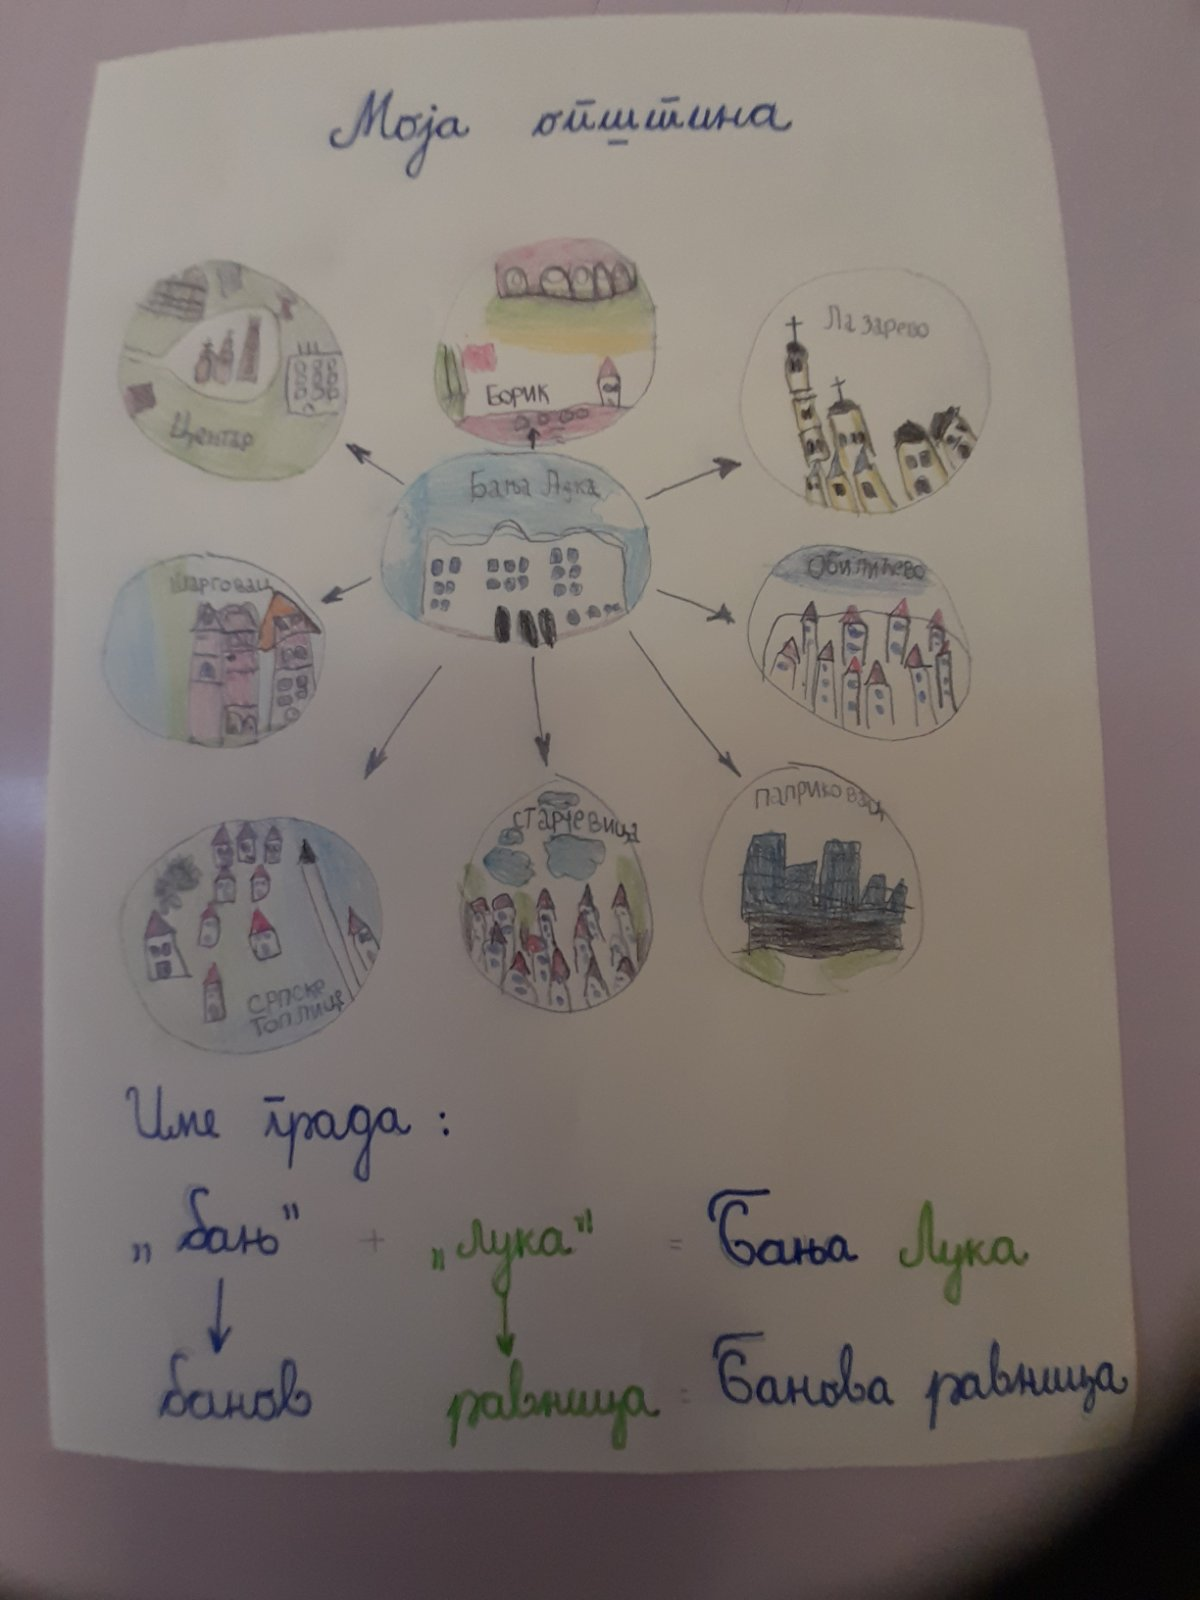 Моја општина
Центар
БОРИК
Лазарево
Бања Лука
Шарговац
Обилићево
СРПСКЕ
ТОПЛИЦЕ
СТАРЧЕВИЦА
ПАПРИКОВАЦ
Име града:
„бањ” + „лука” = Бања Лука
банов равница = Банова равница